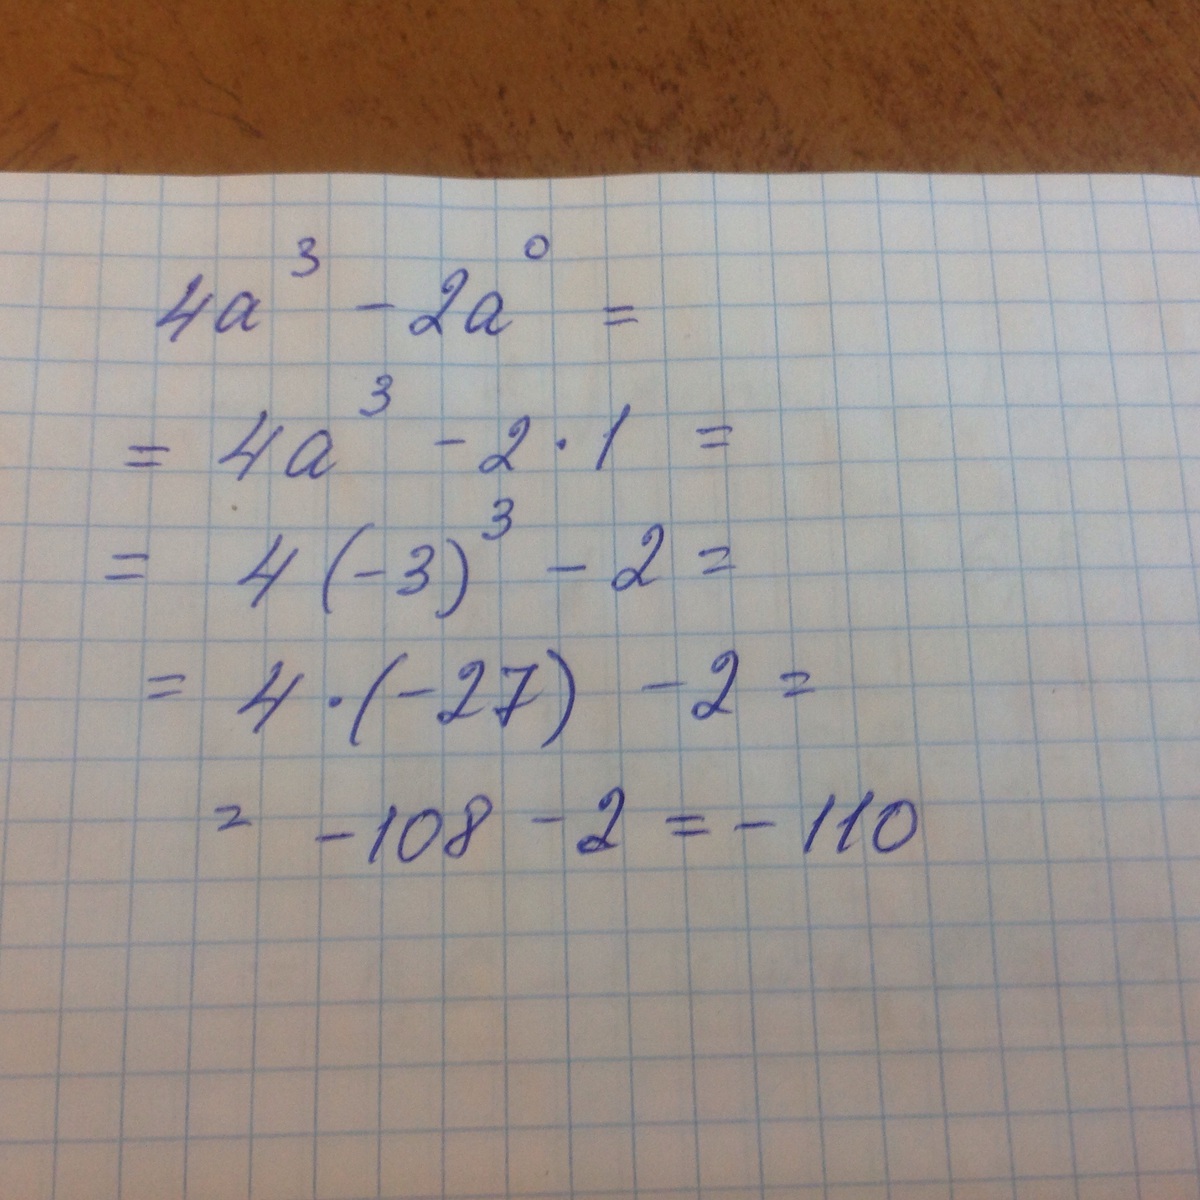 4a³ - 2a⁰ =
= 4a³ - 2 · 1 =
= 4(-3)³ - 2 =
= 4 · (-27) - 2 =
= -108 - 2 = -110